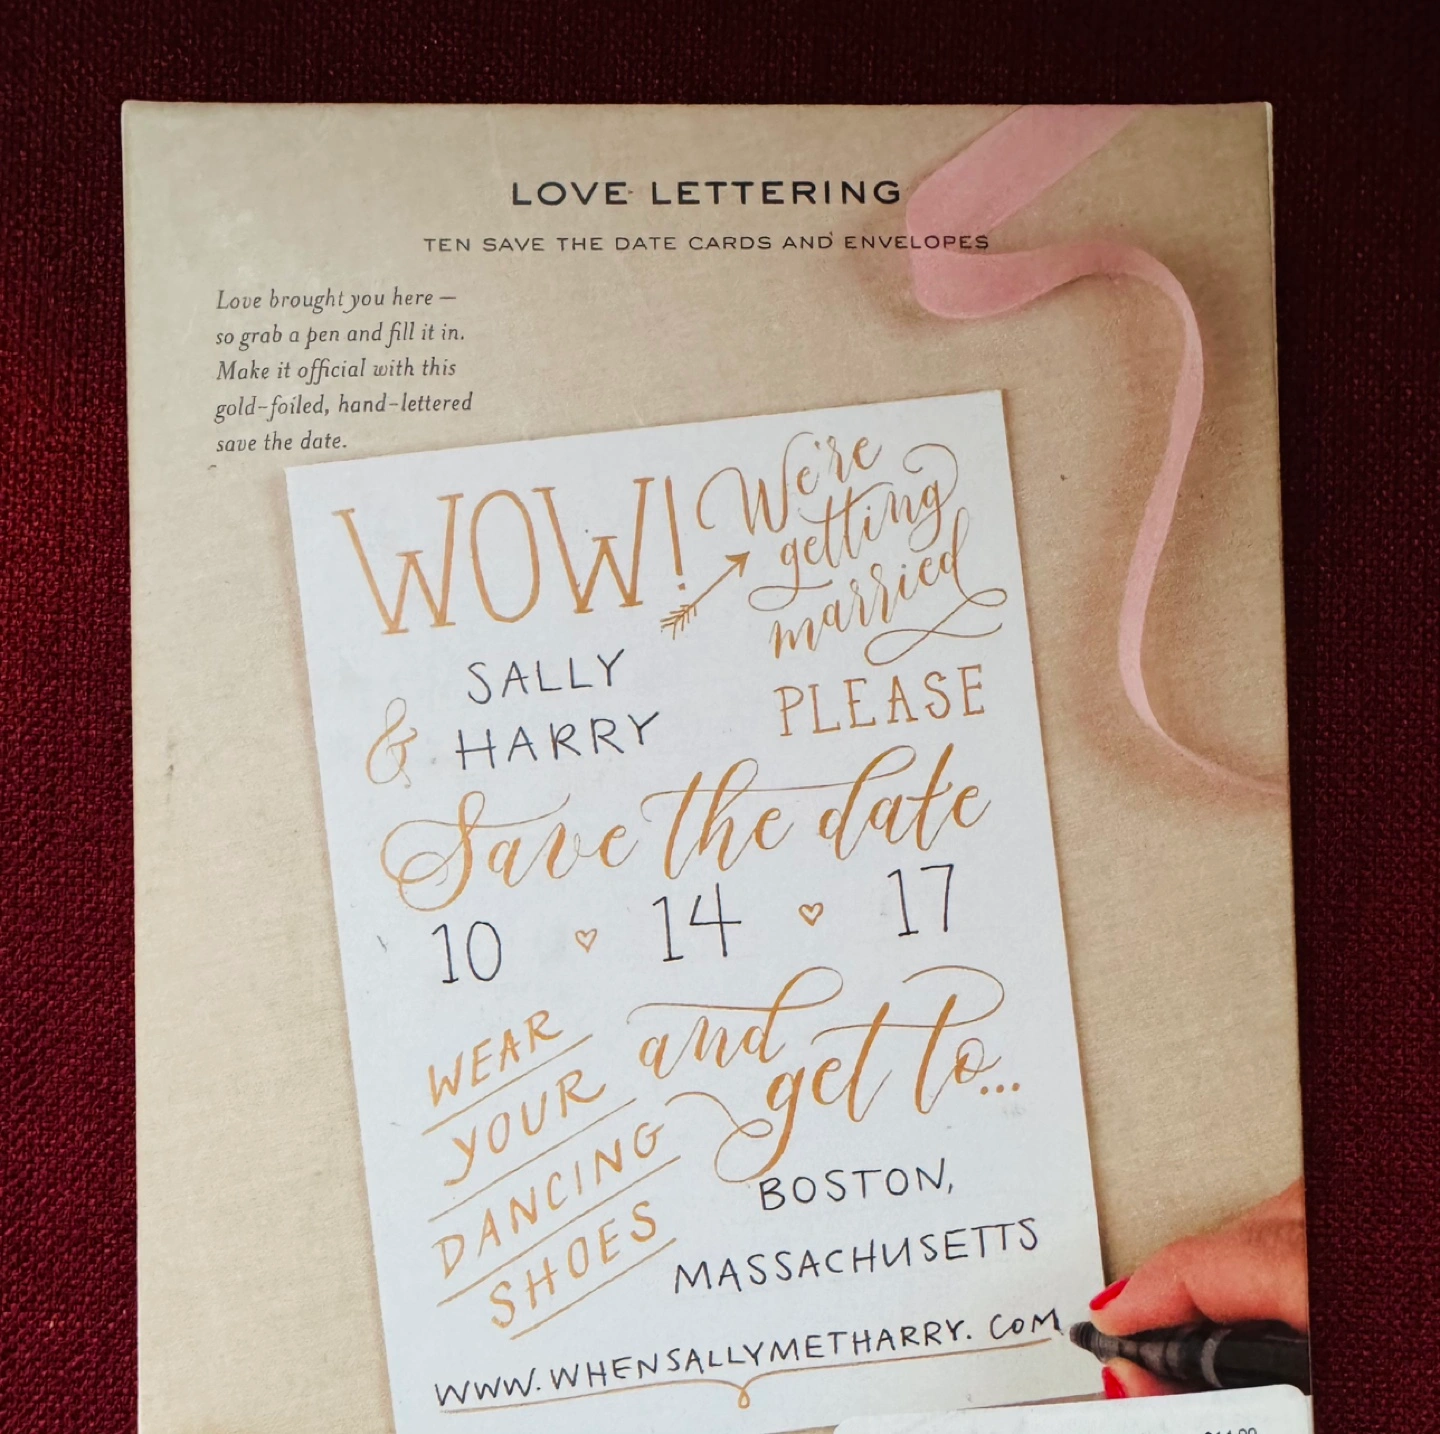 LOVE LETTERING
TEN SAVE THE DATE CARDS AND ENVELOPES
Love brought you here —
so grab a pen and fill it in.
Make it official with this
gold-foiled, hand-lettered
save the date.
WOW!
We're
getting
married
SALLY
& HARRY
PLEASE
Save the date
10 ♡ 14 ♡ 17
WEAR
YOUR
DANCING
SHOES
and
get to...
BOSTON,
MASSACHUSETTS
WWW.WHENSALLYMETHARRY.COM